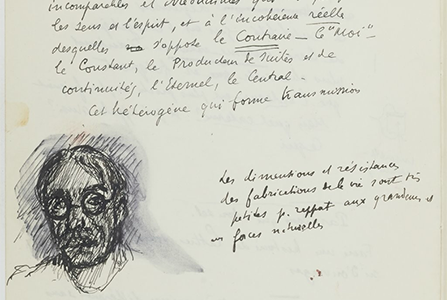 incomparables et
les sens et l'esprit, et à l'incohérence réelle
desquelles s'oppose le Contraire – Ce "Moi" –
le Constant, le Producteur de Suites et de
continuités, l'Éternel, le Central –
Cet hétérogène qui forme transmission
Les dimensions et résistances
des fabrications de la vie sont très
petites p. rapport aux grandeurs et
forces naturelles